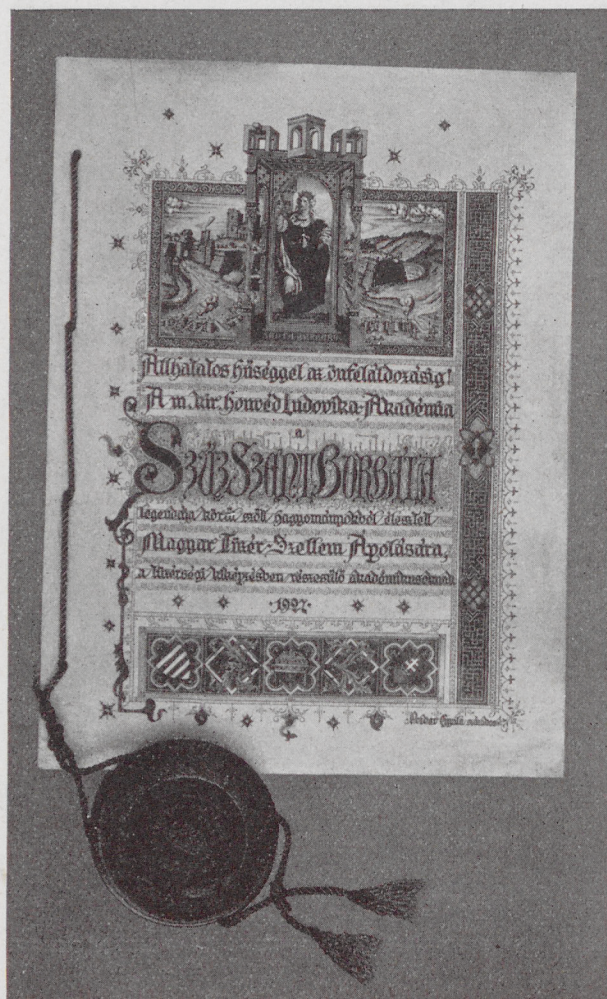 Állhatatos hűséggel az önfeláldozásig!
A m. kir. honvéd Ludovika-Akadémia
a
SZŰZ SZENT BORBÁLA
legendája körül szőtt hagyományokból élesztett
Magyar Tüzér-Szellem Ápolására,
a tüzérségi kiképzésben részesülő akadémikusoknak
1927.